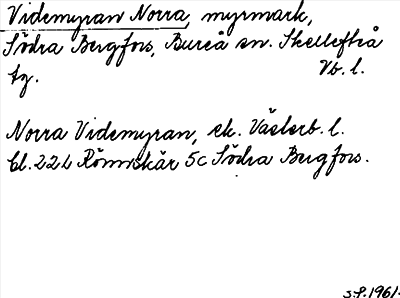 Videmyran Norra, myrmark,
Södra Bergfors, Bureå sn. Skellefteå
tg. Vb. l.
Norra Videmyran, ek. Västerb. l.
bl. 22 L Rönnskär 5c Södra Bergfors.
S.P. 1961.